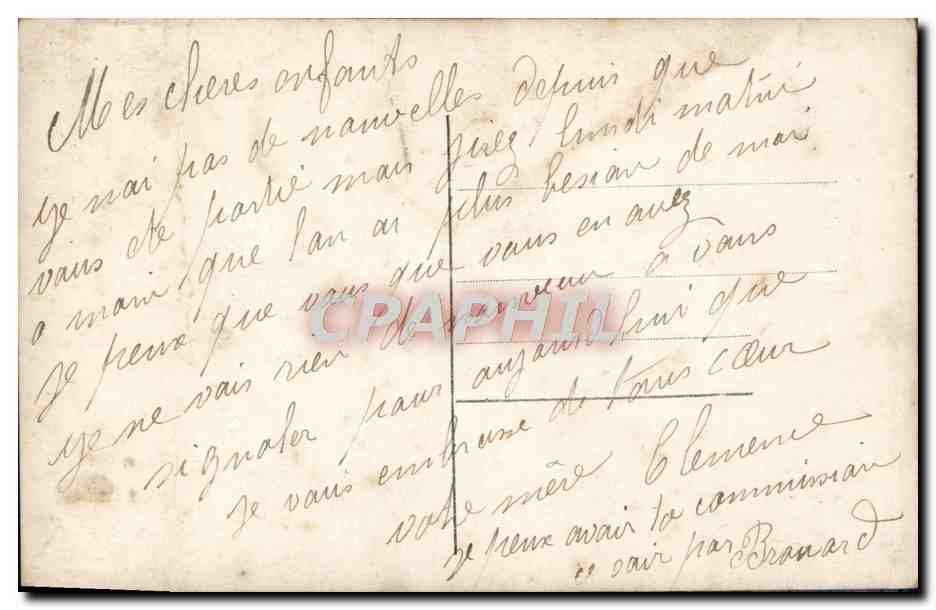 Mes cheres enfants
je nai pas de nauvelles depuis que
vaus ete partie mais jirez lundi matin
a main que lan ai plus besian de mai.
je peux que vaus que vaus en avez
je ne vais rien de nauveau a vaus
signaler paur aujaurdhui que
je vaus embrasse de taus cœur
votre mère Clemence
je peux avair ta commissian
sair par Brauard
CPAPHIL